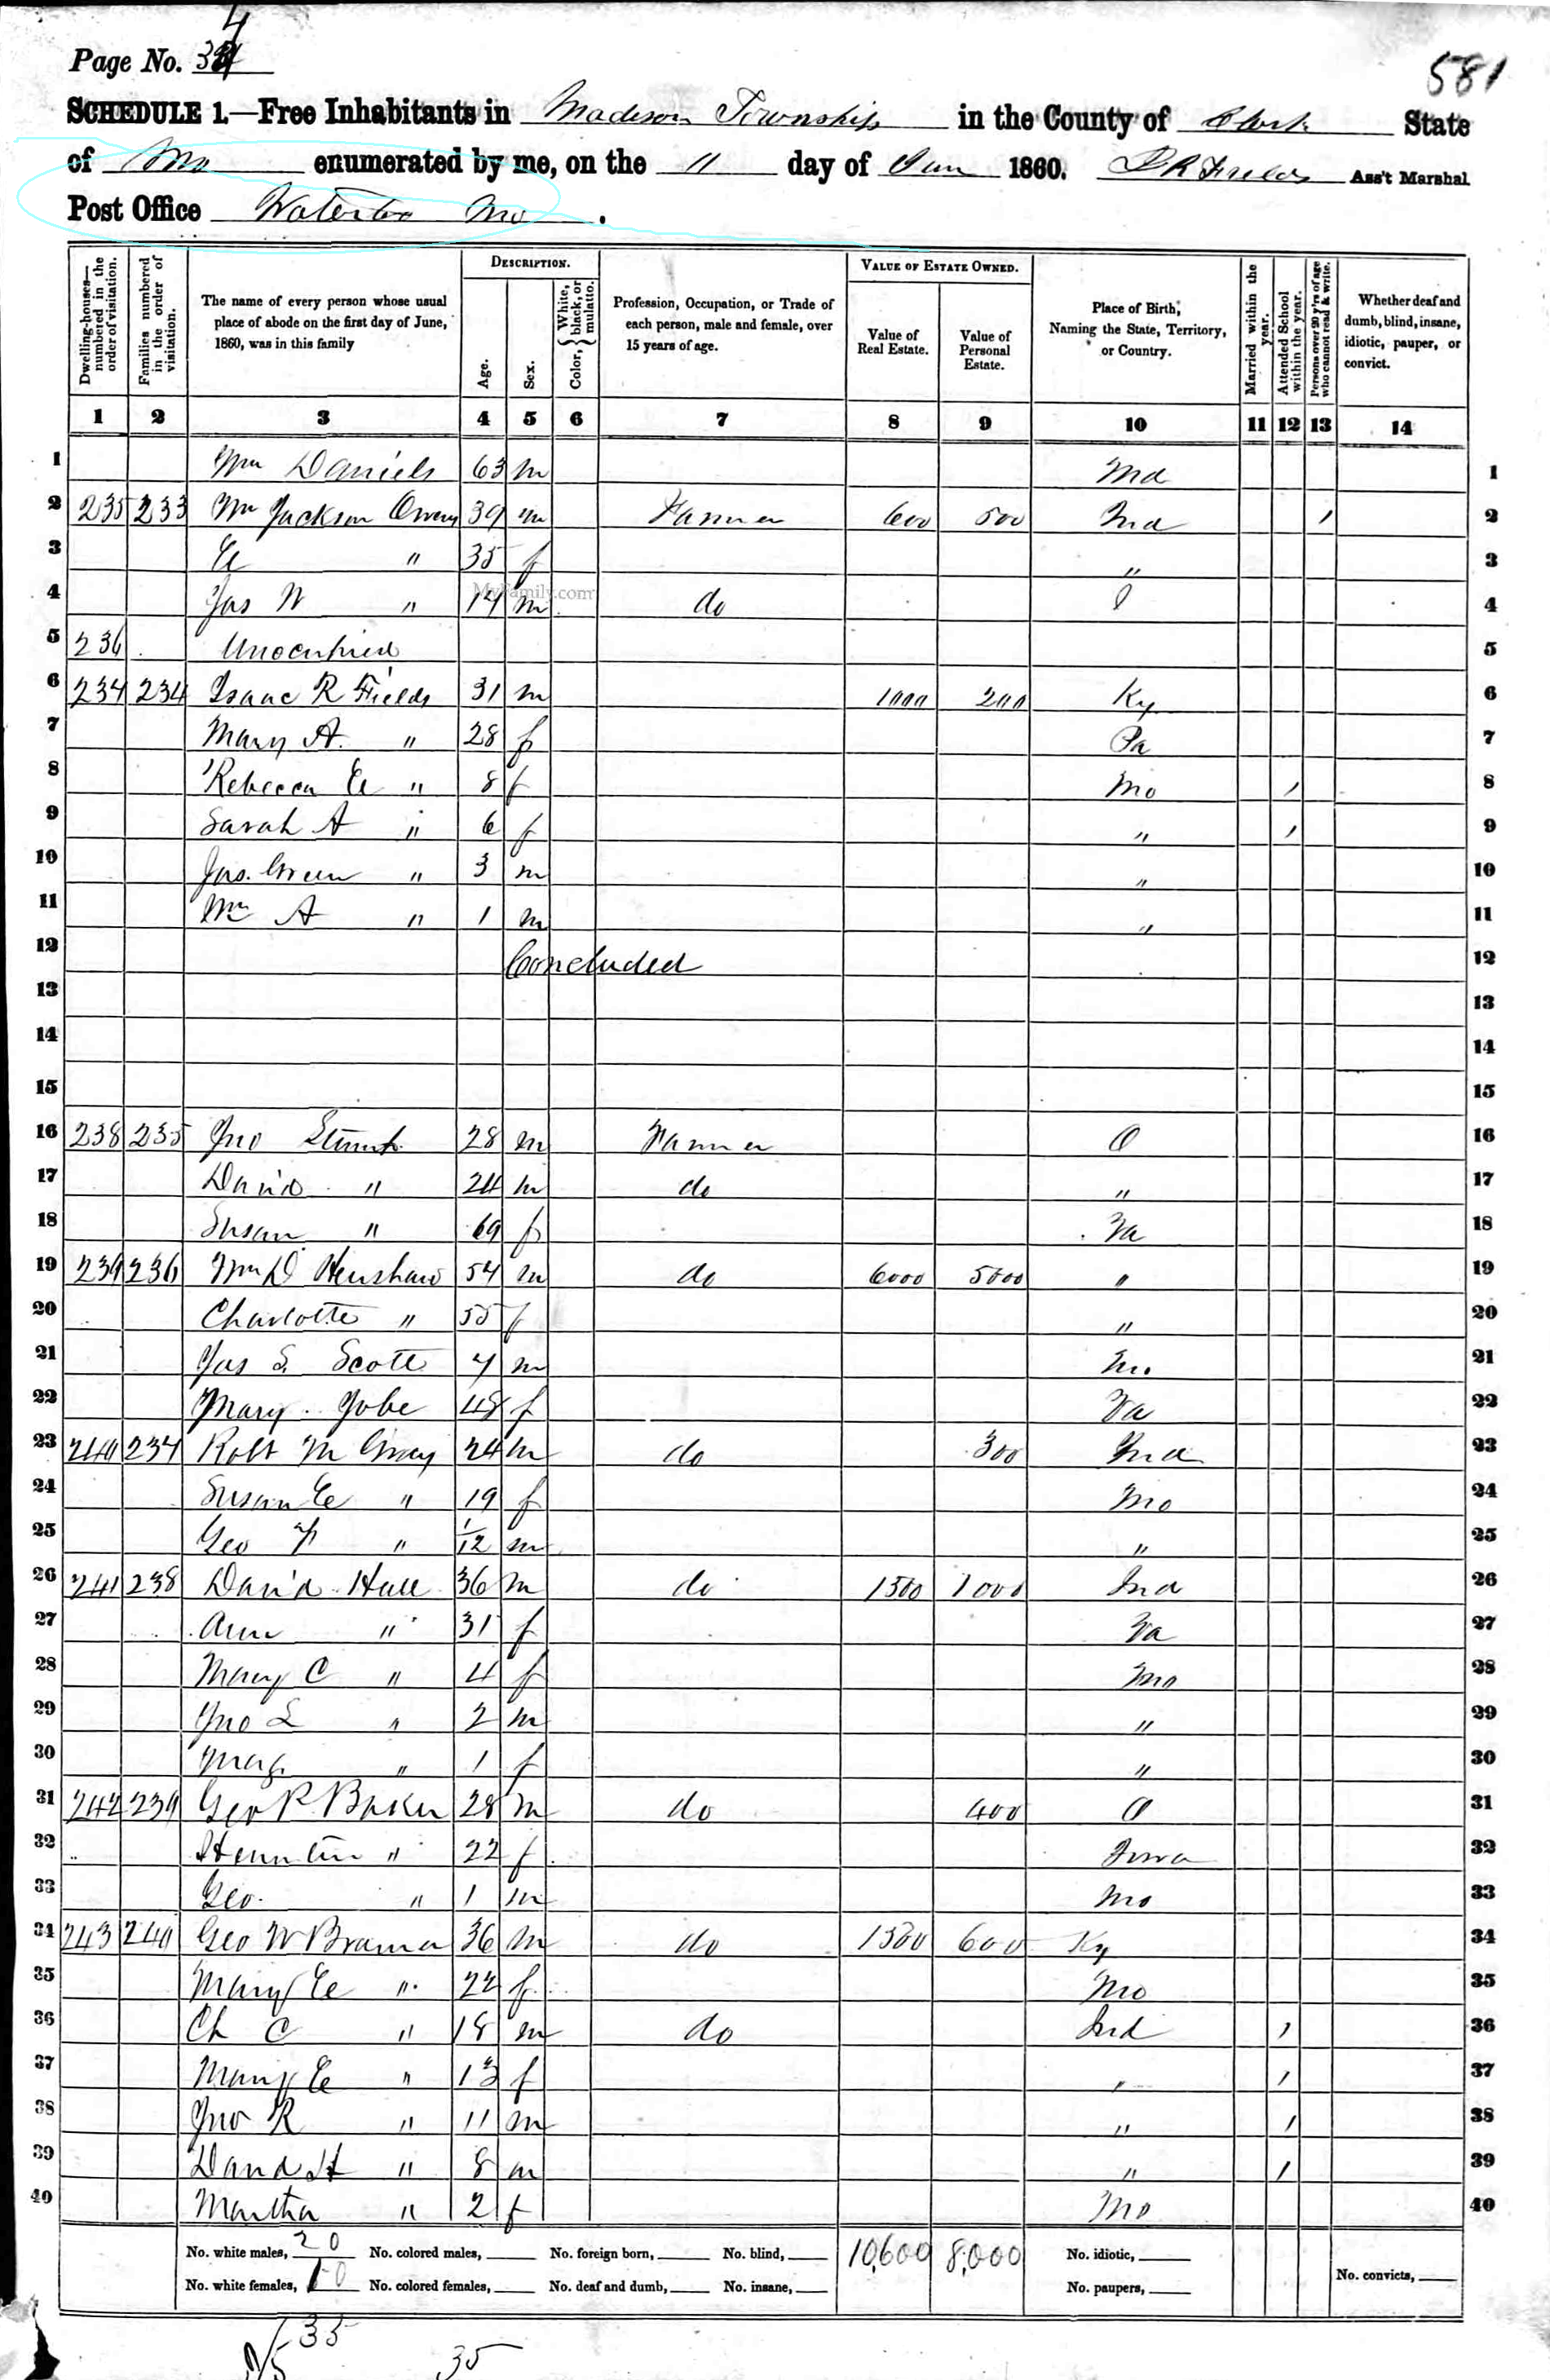 4
Page No. 34
581
SCHEDULE 1.—Free Inhabitants in Madison Township in the County of Clark State
of Mo enumerated by me, on the 11 day of Jun 1860. I R Fields Ass't Marshal
Post Office Waterloo Mo.
Dwelling-houses—numbered in the order of visitation.
Families numbered in the order of visitation.
The name of every person whose usual place of abode on the first day of June, 1860, was in this family
DESCRIPTION.
Age.
Sex.
Color, { White, black, or mulatto.
Profession, Occupation, or Trade of each person, male and female, over 15 years of age.
VALUE OF ESTATE OWNED.
Value of Real Estate.
Value of Personal Estate.
Place of Birth, Naming the State, Territory, or Country.
Married within the year.
Attended School within the year.
Persons over 20 y'rs of age who cannot read & write.
Whether deaf and dumb, blind, insane, idiotic, pauper, or convict.
1 2 3 4 5 6 7 8 9 10 11 12 13 14
1 Wm Daniels 63 m Md 1
2 235 233 Wm Jackson Owens 39 m Farmer 600 500 Ind / 2
3 E " 35 f " 3
4 Jas W " 14 m do 4
MyFamily.com
5 236 Unocupied 5
6 237 234 Isaac R Fields 31 m 1000 200 Ky 6
7 Mary A. " 28 f Pa 7
8 Rebecca E " 8 f Mo / 8
9 Sarah A " 6 f " / 9
10 Jas. Green " 3 m " 10
11 Wm A " 1 m " 11
12 Concluded 12
13 13
14 14
15 15
16 238 235 Jno 28 m Farmer O 16
17 David " 24 m do " 17
18 Susan " 69 f Va 18
19 239 236 Wm D Henshaw 54 m do 6000 5000 " 19
20 Charlotte " 55 f " 20
21 Jas S. Scott 7 m Mo 21
22 Mary Jobe 48 f Va 22
23 240 237 Robt M Gray 24 m do 300 Ind 23
24 Susan E " 19 f Mo 24
25 Geo " 1/12 m " 25
26 241 238 David Hall 36 m do 1500 1000 Ind 26
27 Ann " 31 f Va 27
28 Mary C " 4 f Mo 28
29 Jno L " 2 m " 29
30 Mag. " 1 f " 30
31 242 239 Geo P Baker 28 m do 400 O 31
32 " 22 f Iowa 32
33 Geo. " 1 m Mo 33
34 243 240 Geo W Bramer 36 m do 1500 600 Ky 34
35 Mary E " 22 f Mo 35
36 Ch C " 18 m do Ind / 36
37 Mary E " 13 f " / 37
38 Jno R " 11 m " / 38
39 David H " 8 m " / 39
40 Martha " 2 f Mo 40
No. white males, 20 No. colored males, No. foreign born, No. blind, 10,600 8,000 No. idiotic,
No. white females, No. colored females, No. deaf and dumb, No. insane, No. paupers, No. convicts,
35
35